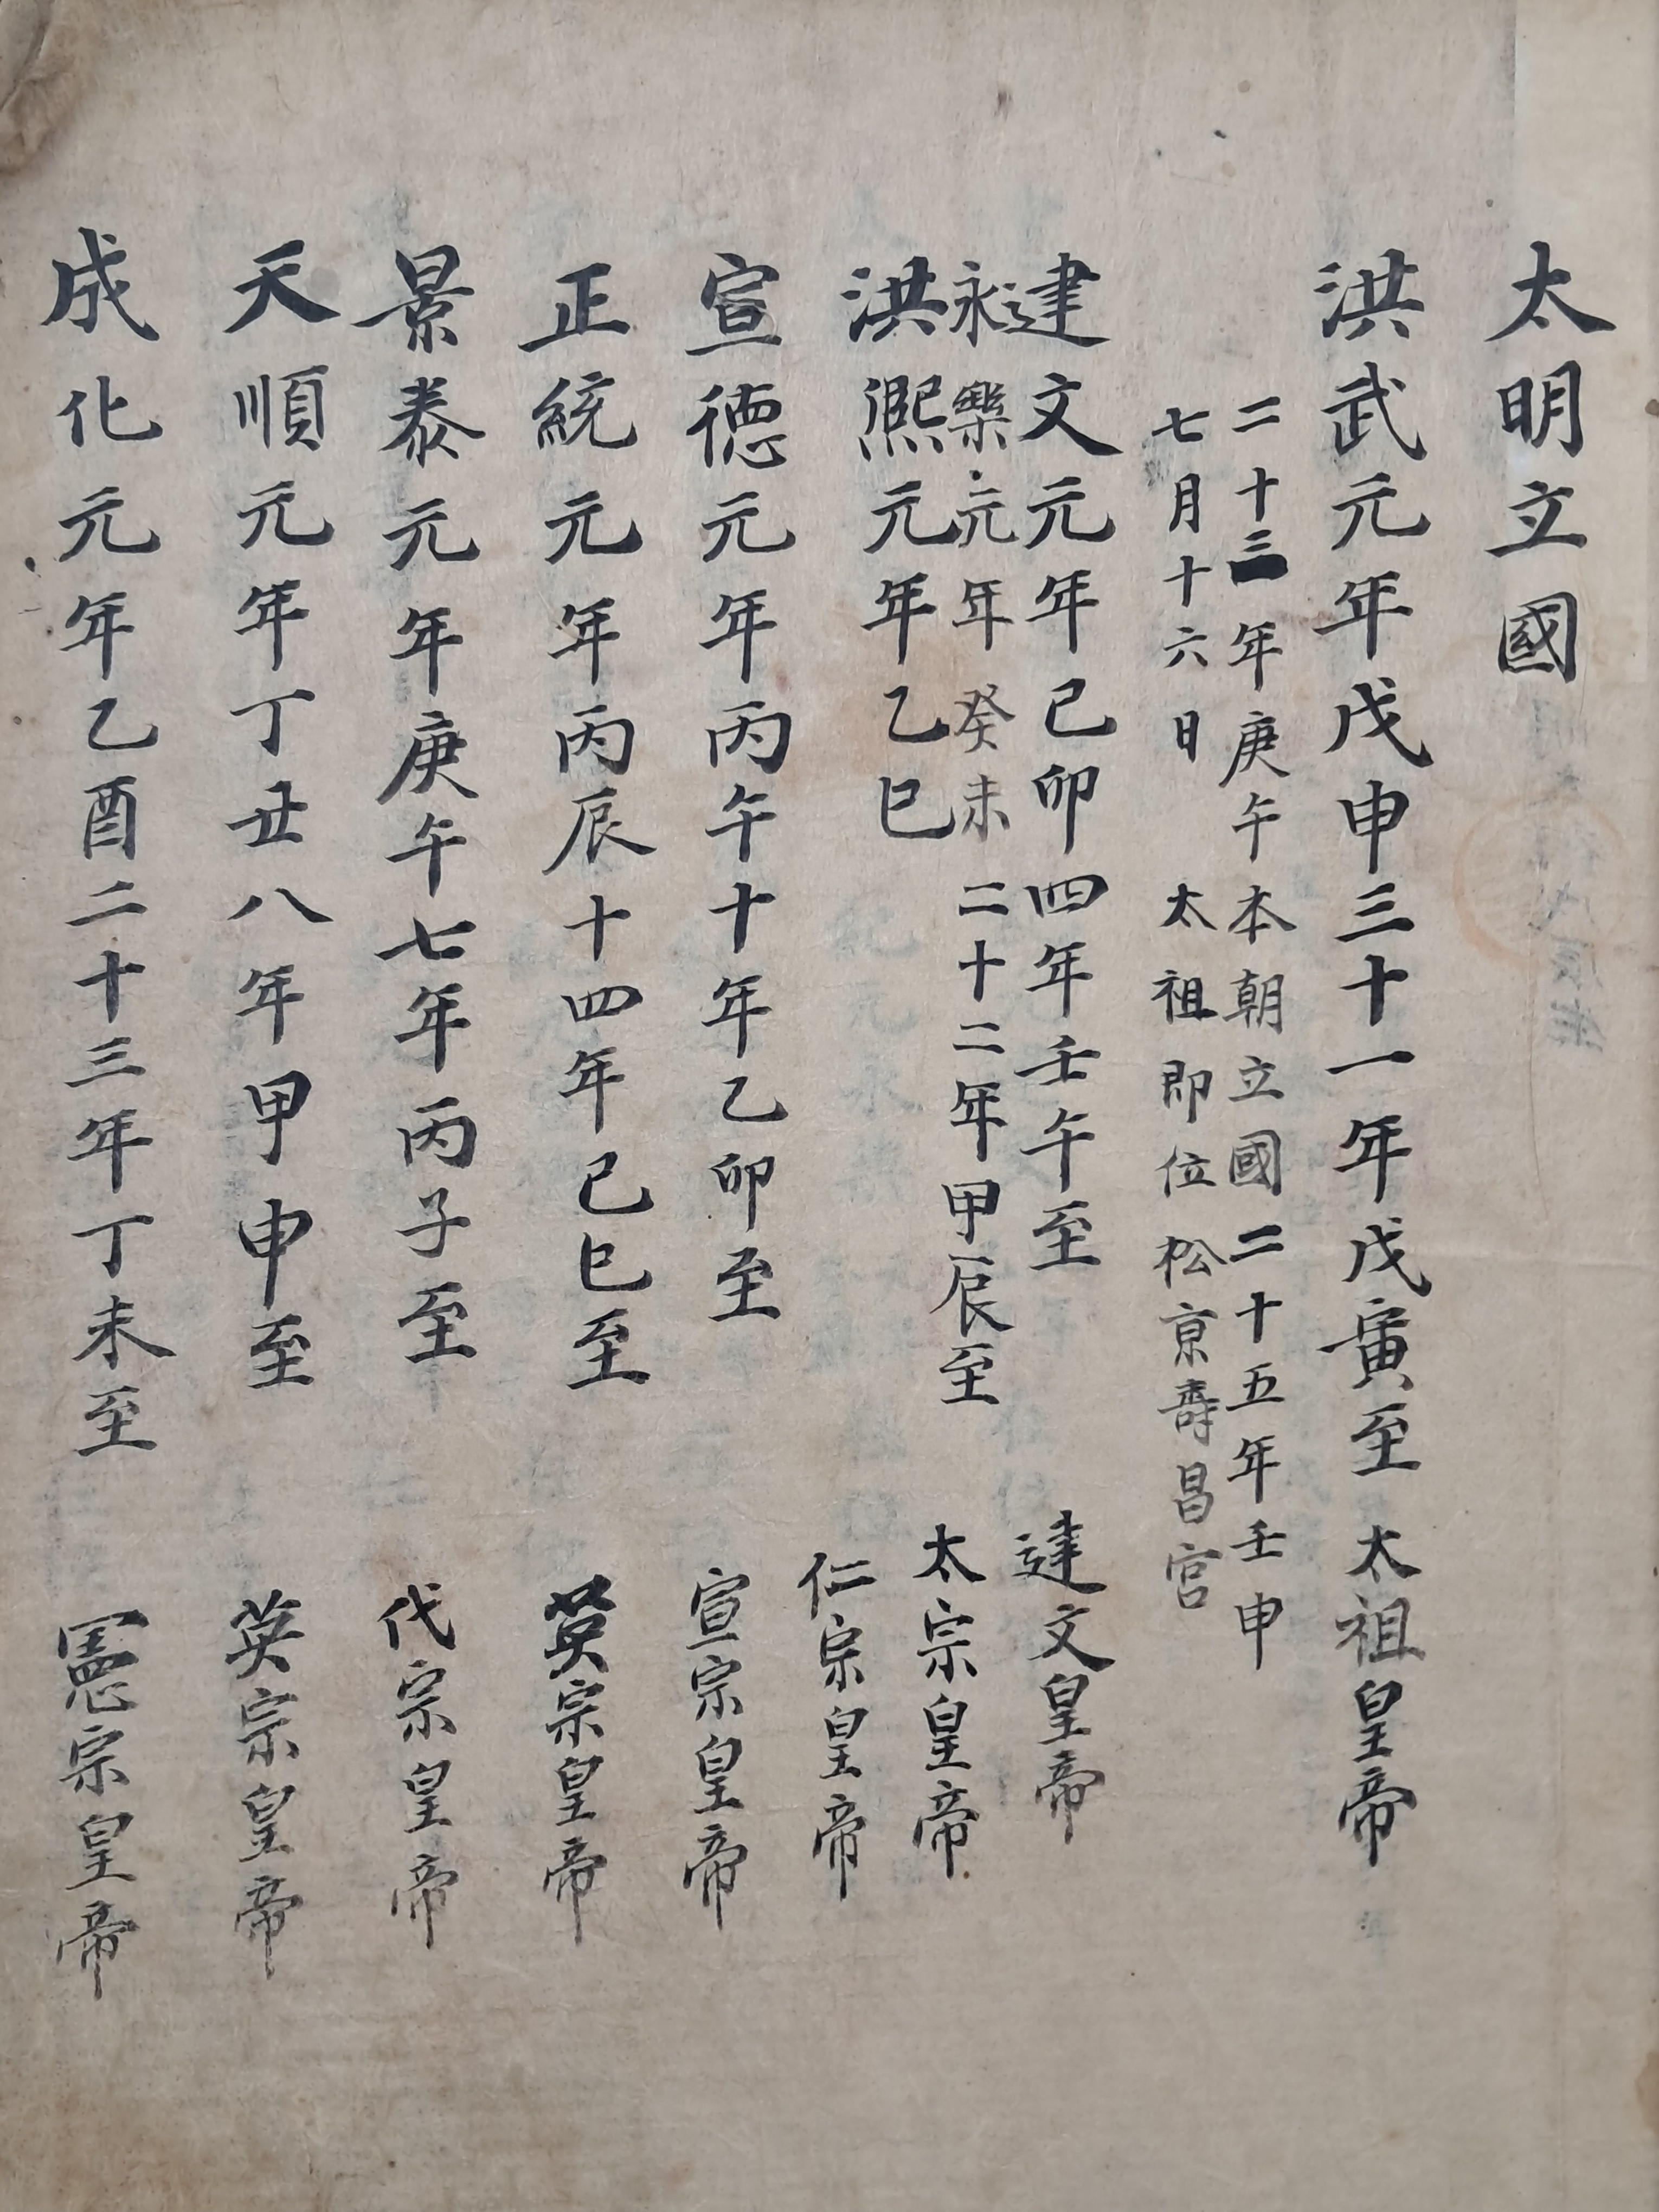 太明立國
洪武元年戊申三十一年戊寅至 太祖皇帝
二十三年庚午本朝立國二十五年壬申
七月十六日 太祖即位松京壽昌宮
建文元年己卯四年壬午至 建文皇帝
永樂元年癸未二十二年甲辰至 太宗皇帝
洪熙元年乙巳 仁宗皇帝
宣德元年丙午十年乙卯至 宣宗皇帝
正統元年丙辰十四年己巳至 英宗皇帝
景泰元年庚午七年丙子至 代宗皇帝
天順元年丁丑八年甲申至 英宗皇帝
成化元年乙酉二十三年丁未至 憲宗皇帝